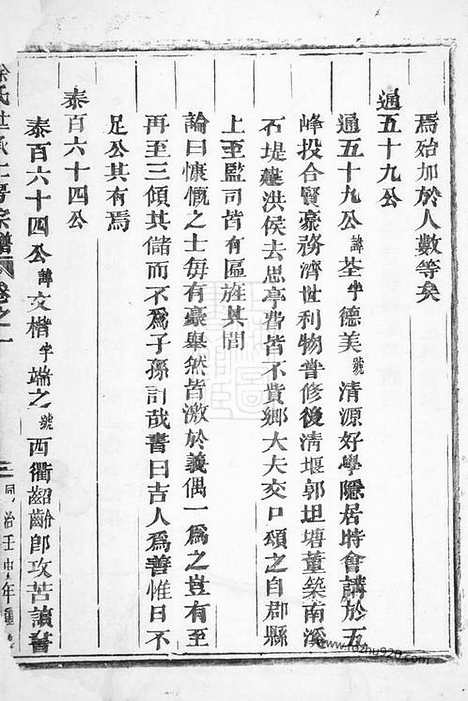 焉殆加於人數等矣
通五十九公
通五十九公諱荃字德美號清源好學隱居時會講於五
峰投合賢豪務濟世利物嘗修後清堰郭坦塘董築南溪
石堤建洪侯去思亭費皆不貲鄉大夫交口頌之自郡縣
上至監司皆有區旌其閭
論曰慷慨之士每有豪舉然皆激於義偶一為之豈有至
再至三傾其儲而不為子孫討哉書曰吉人為善惟日不
足公其有焉
泰百六十四公
泰百六十四公諱文楷字端之號西衢齠齡即攻苦讀書
氏世
宗譜 卷之一
三
同治壬申年重